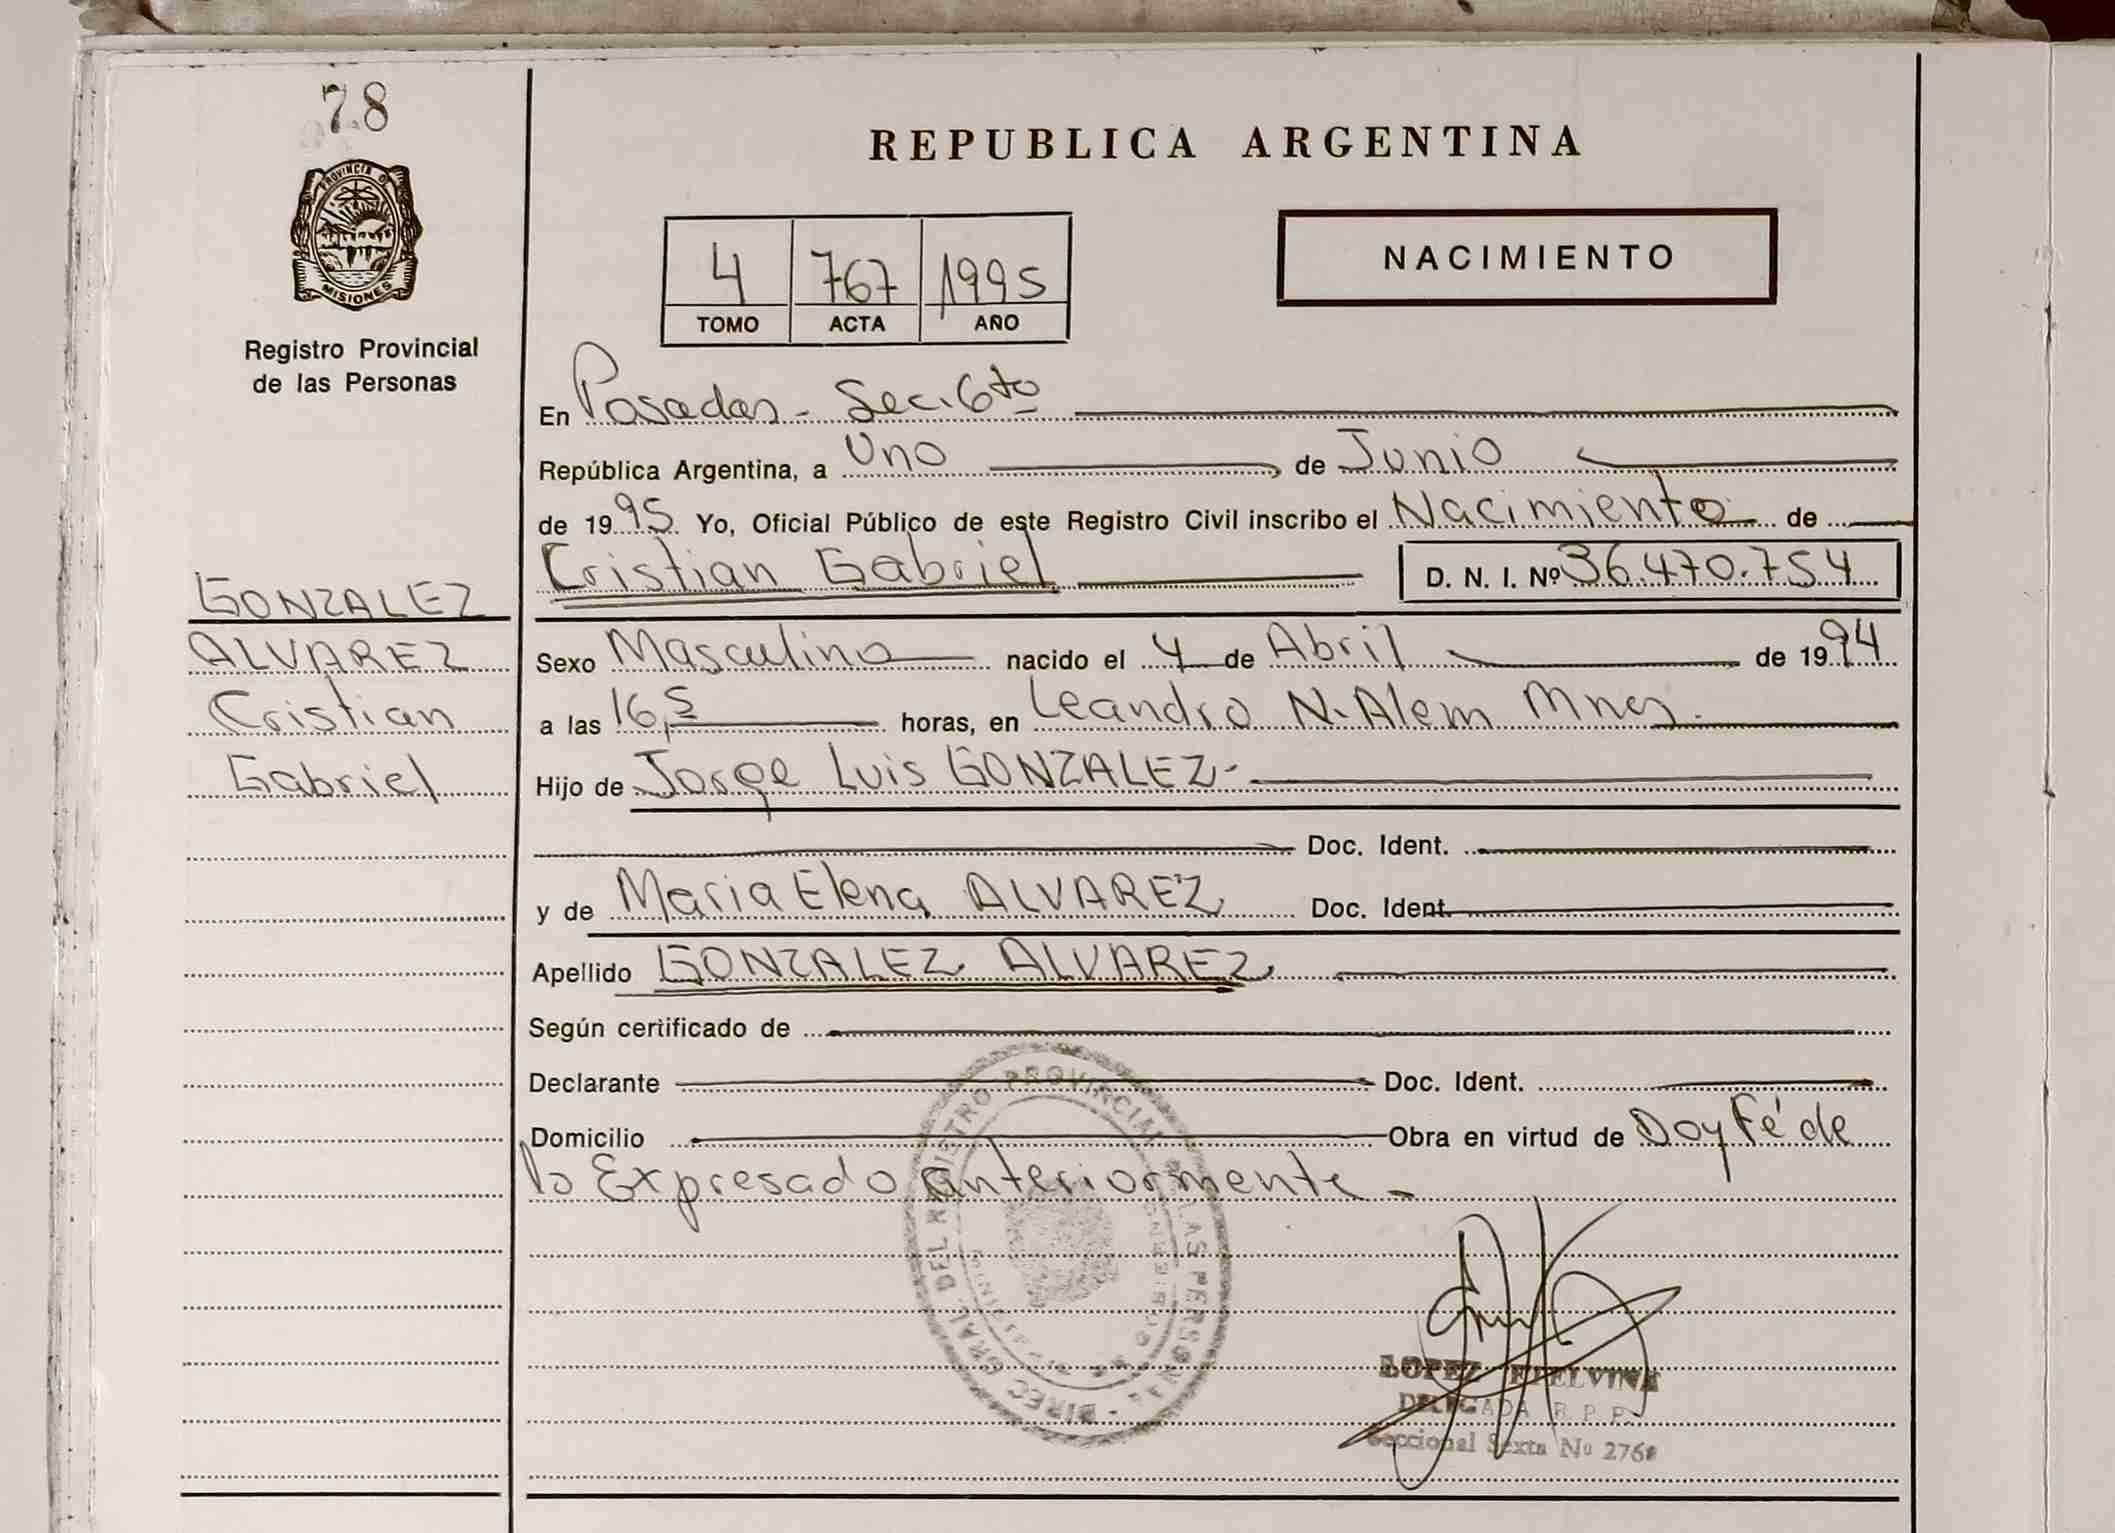 78
PROVINCIA DE
MISIONES
Registro Provincial
de las Personas
GONZALEZ
ALVAREZ
Cristian
Gabriel
REPUBLICA ARGENTINA
4 767 1995
TOMO ACTA AÑO
NACIMIENTO
En Posadas - Sec. 6to
República Argentina, a Uno de Junio
de 1995. Yo, Oficial Público de este Registro Civil inscribo el Nacimiento de
Cristian Gabriel D. N. I. Nº 36.470.754
Sexo Masculino nacido el 4 de Abril de 1994
a las 16,5 horas, en Leandro N. Alem Mnes.
Hijo de Jorge Luis GONZALEZ-
Doc. Ident.
y de Maria Elena ALVAREZ Doc. Ident.
Apellido GONZALEZ ALVAREZ
Según certificado de
Declarante Doc. Ident.
Domicilio Obra en virtud de Doy Fé de
lo Expresado anteriormente.-
DIREC. GRAL. DEL REGISTRO PROVINCIAL DE LAS PERSONAS
LOPEZ ETELVINA
DELEGADA R. P. P.
Seccional Sexta Nº